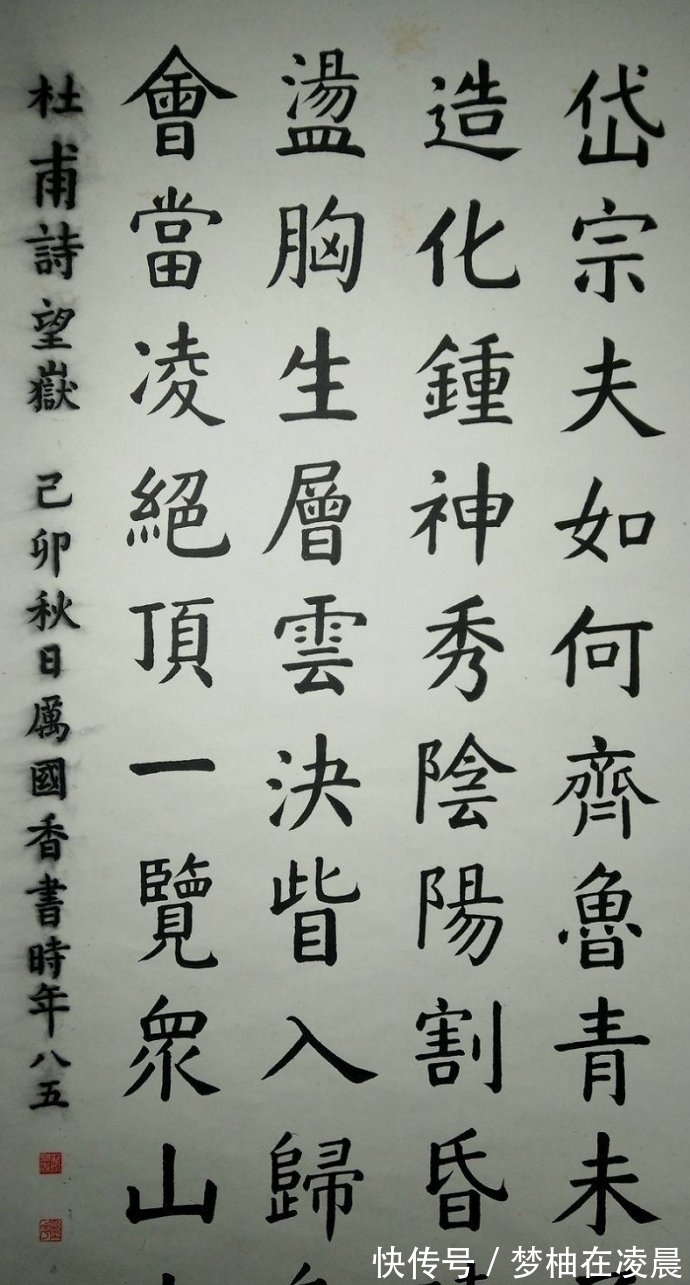 岱宗夫如何齊魯青未
造化鍾神秀陰陽割昏
盪胸生層雲決眥入歸
會當凌絕頂一覽眾山
杜甫詩望嶽 己卯秋日厲國香書時年八五
快传号 / 梦柚在凌晨